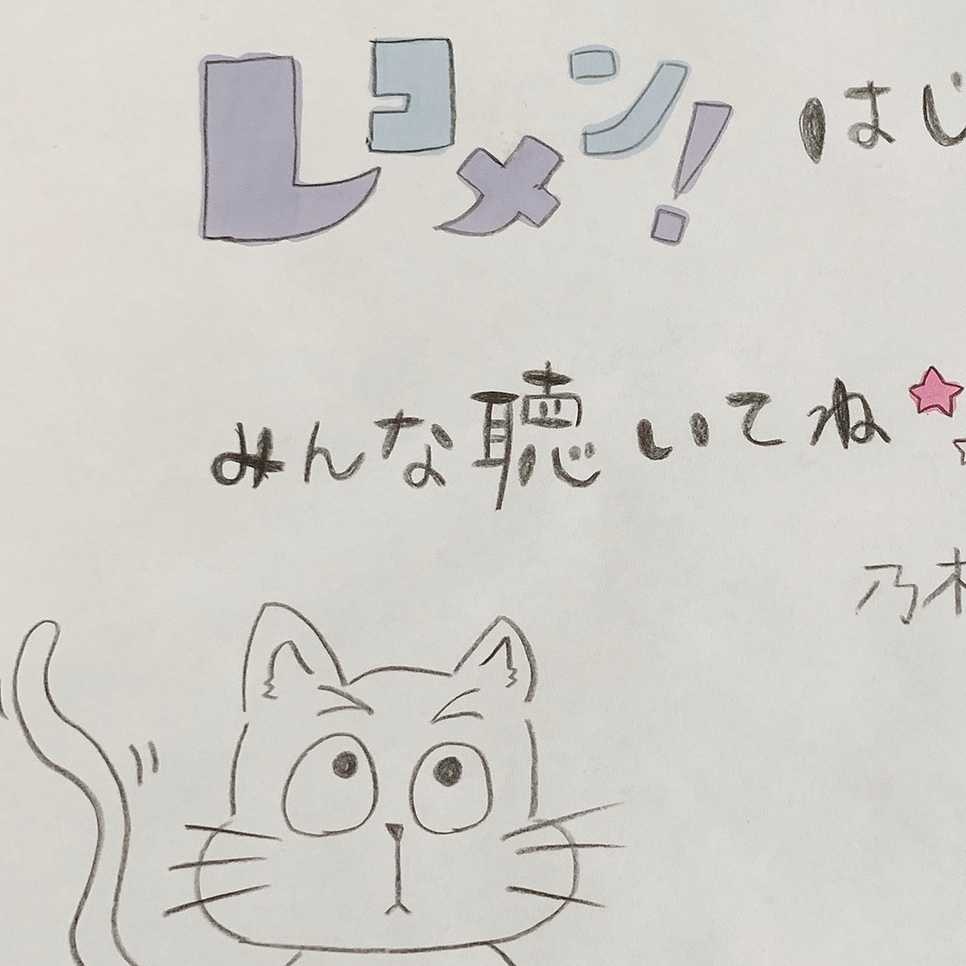 レコメン! はじ
みんな聴いてね
乃木